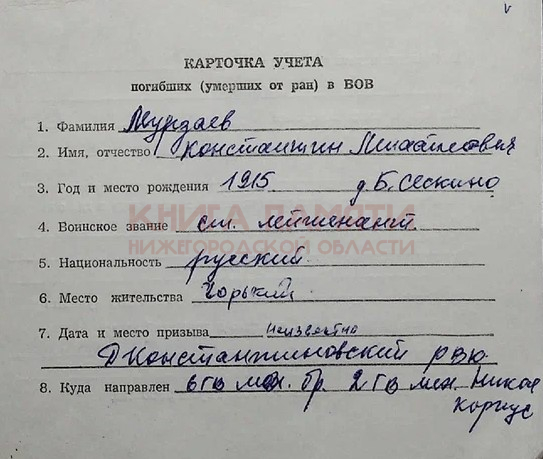 КАРТОЧКА УЧЕТА
погибших (умерших от ран) в ВОВ
1. Фамилия Мурзаев
2. Имя, отчество Константин Михайлович
3. Год и место рождения 1915 д. Б. Сескино
КНИГА ПАМЯТИ
4. Воинское звание ст. лейтенант
НИЖЕГОРОДСКОЙ ОБЛАСТИ
5. Национальность русский
6. Место жительства Горький
7. Дата и место призыва неизвестно
Д Константиновский РВК
8. Куда направлен 6 гв мех. бр. 2 гв мех. Никол
корпус